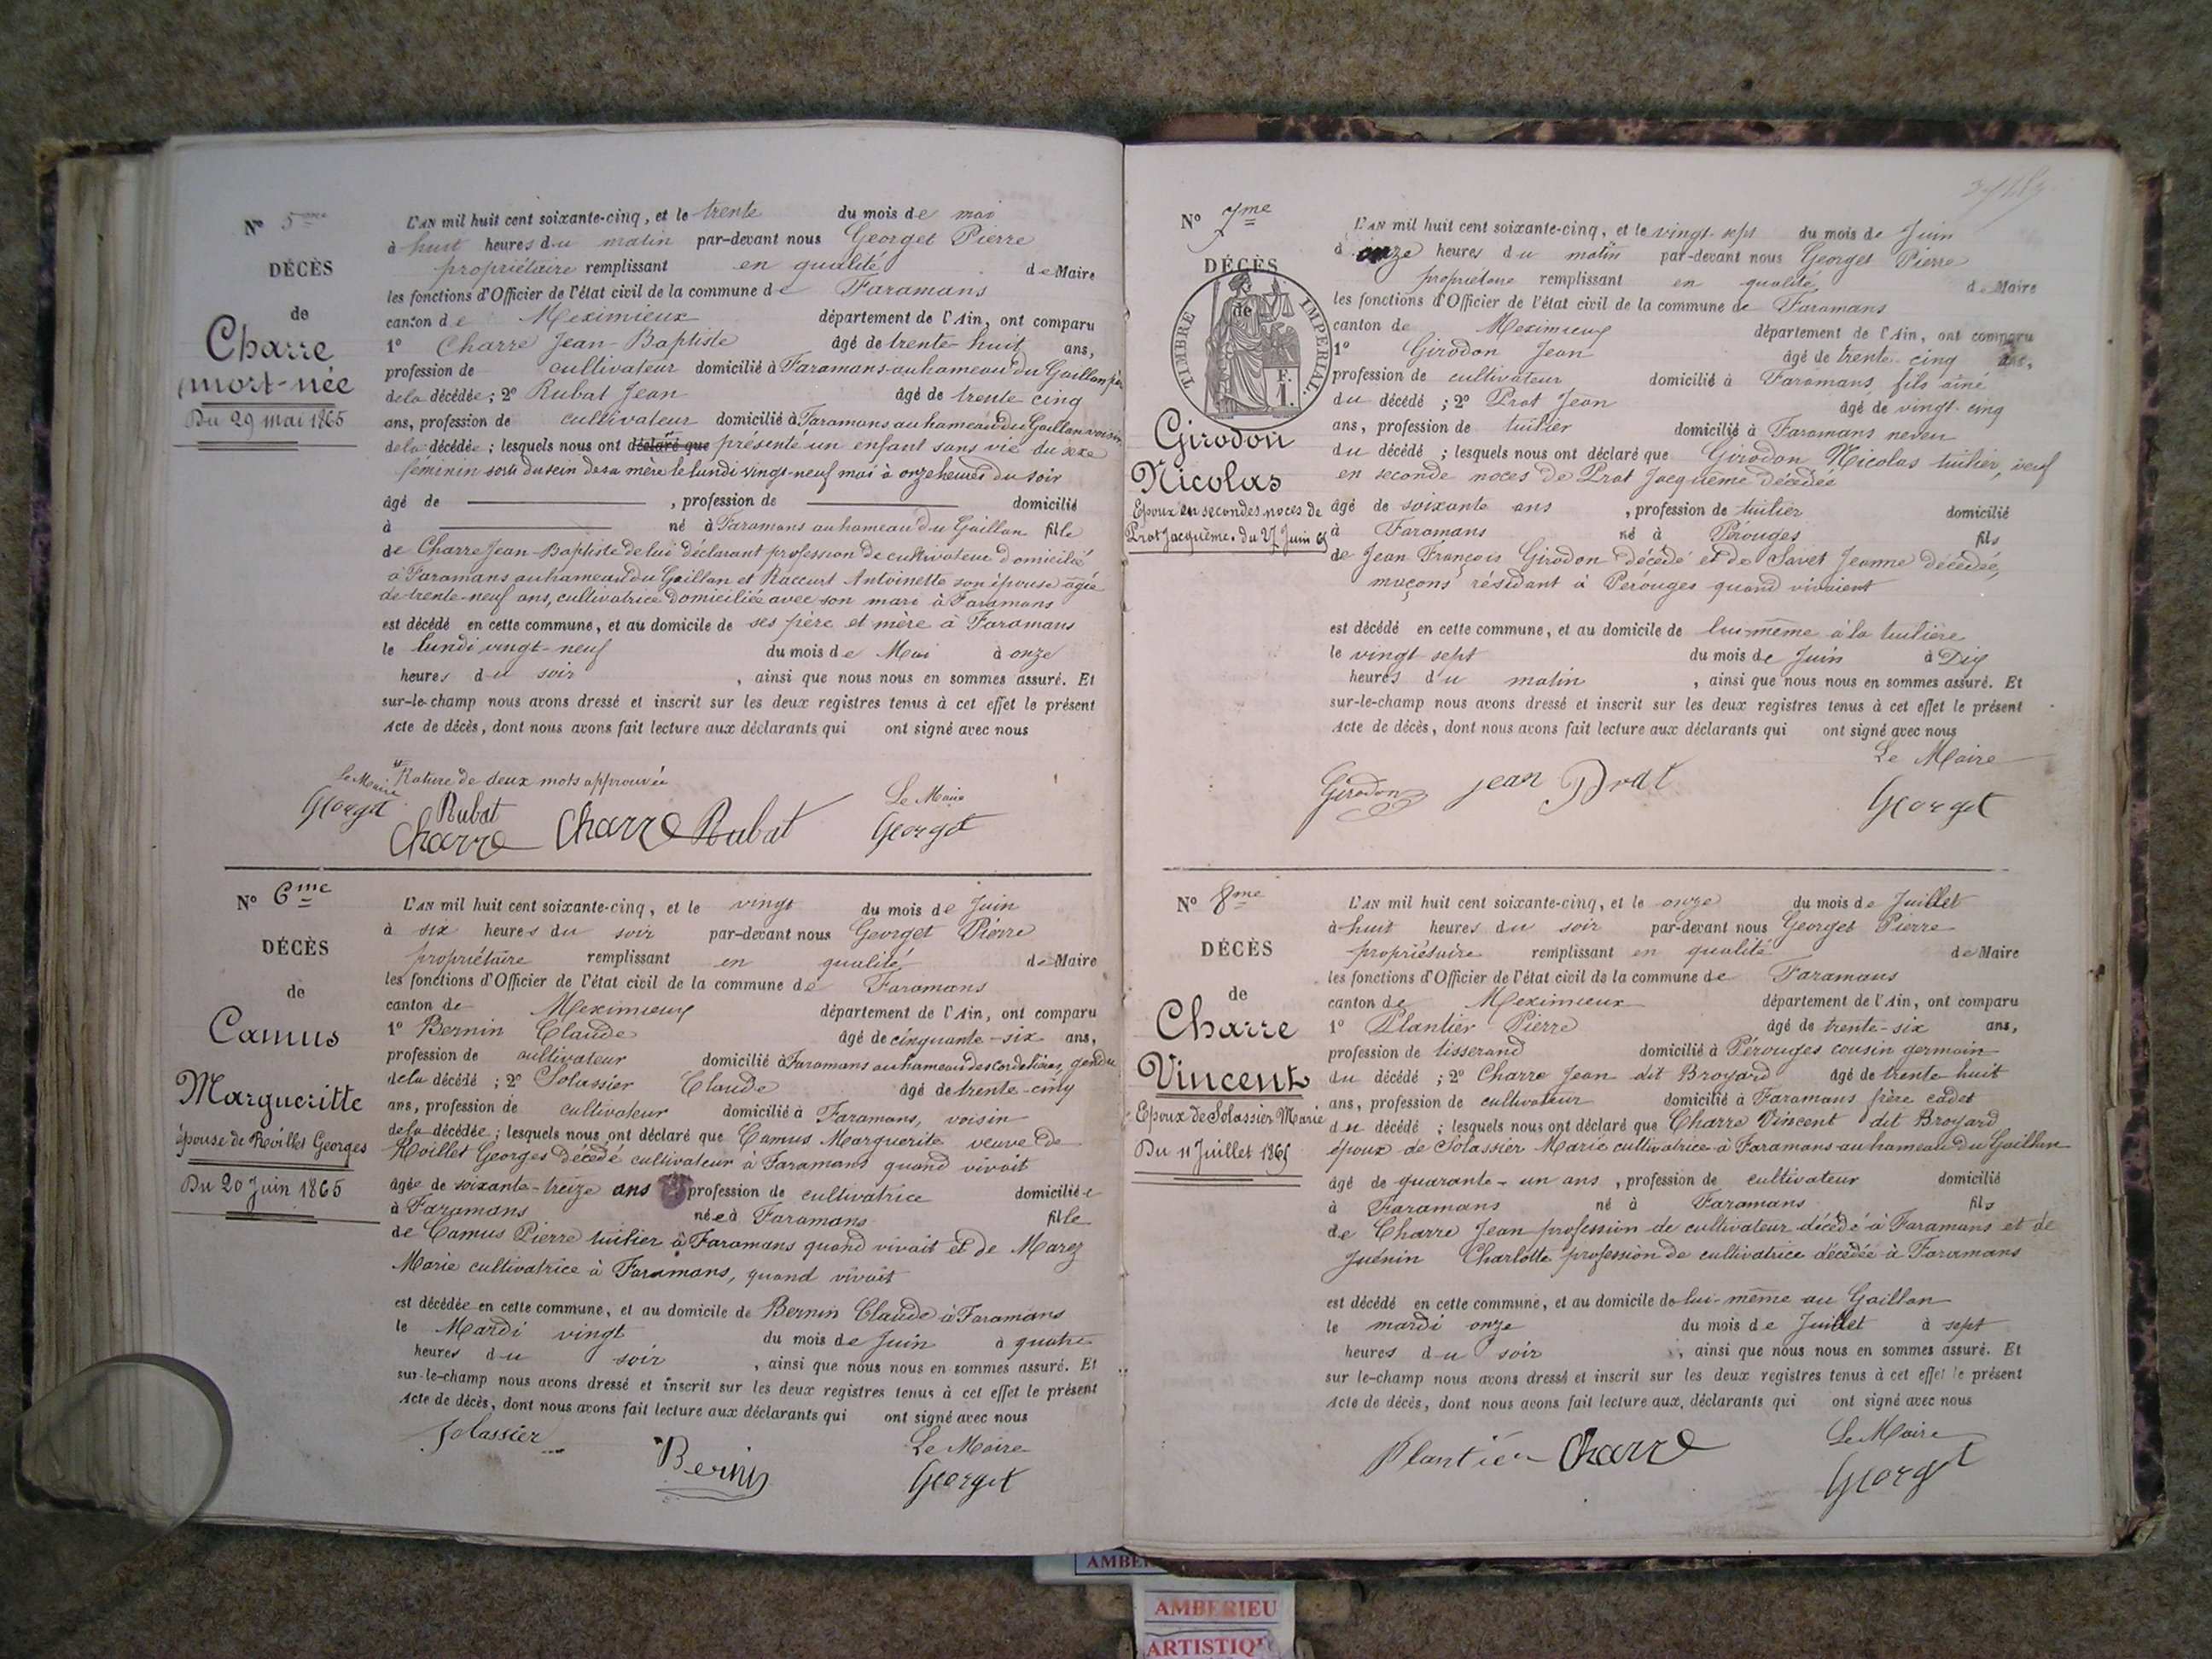 Nº 5me
DÉCÈS
de
Charre
mort-née
Du 29 mai 1865
L'AN mil huit cent soixante-cinq, et le trente du mois de mai
à huit heures du matin par-devant nous Georget Pierre
propriétaire remplissant en qualité de Maire
les fonctions d'Officier de l'état civil de la commune de Faramans
canton de Meximieux département de l'Ain, ont comparu
1º Charre Jean-Baptiste âgé de trente-huit ans,
profession de cultivateur domicilié à Faramans au hameau du Gaillon père
de la décédée ; 2º Rubat Jean âgé de trente cinq
ans, profession de cultivateur domicilié à Faramans au hameau du Gaillon voisin
de la décédée ; lesquels nous ont déclaré que présenté un enfant sans vie du sexe
féminin sorti du sein de sa mère le lundi vingt-neuf mai à onze heures du soir
âgé de , profession de domicilié
à né à Faramans au hameau du Gaillon fille
de Charre Jean-Baptiste de lui déclarant profession de cultivateur domicilié
à Faramans au hameau du Gaillon et Raccurt Antoinette son épouse âgée
de trente-neuf ans, cultivatrice domiciliée avec son mari à Faramans
est décédé en cette commune, et au domicile de ses père et mère à Faramans
le lundi vingt-neuf du mois de Mai à onze
heures du soir , ainsi que nous nous en sommes assuré. Et
sur-le-champ nous avons dressé et inscrit sur les deux registres tenus à cet effet le présent
Acte de décès, dont nous avons fait lecture aux déclarants qui ont signé avec nous
Rature de deux mots approuvée
Le Maire Le Maire
Georget Rubat
Charre Charre Rubat Georget
Nº 6me
DÉCÈS
de
Camus
Margueritte
épouse de Roillet Georges
Du 20 Juin 1865
L'AN mil huit cent soixante-cinq, et le vingt du mois de Juin
à six heures du soir par-devant nous Georget Pierre
propriétaire remplissant en qualité de Maire
les fonctions d'Officier de l'état civil de la commune de Faramans
canton de Meximieux département de l'Ain, ont comparu
1º Bernin Claude âgé de cinquante-six ans,
profession de cultivateur domicilié à Faramans au hameau des Cordelières, gendre
de la décédé ; 2º Solassier Claude âgé de trente-cinq
ans, profession de cultivateur domicilié à Faramans, voisin
de la décédée ; lesquels nous ont déclaré que Camus Marguerite veuve de
Roillet Georges décédé cultivateur à Faramans quand vivait
âgée de soixante-treize ans , profession de cultivatrice domiciliée
à Faramans née à Faramans fille
de Camus Pierre tuilier à Faramans quand vivait et de Marez
Marie cultivatrice à Faramans, quand vivait
est décédée en cette commune, et au domicile de Bernin Claude à Faramans
le Mardi vingt du mois de Juin à quatre
heures du soir , ainsi que nous nous en sommes assuré. Et
sur-le-champ nous avons dressé et inscrit sur les deux registres tenus à cet effet le présent
Acte de décès, dont nous avons fait lecture aux déclarants qui ont signé avec nous
Solassier Le Maire
Bernin Georget
Nº 7me
DÉCÈS
de
TIMBRE IMPÉRIAL
F.
1.
Girodon
Nicolas
Epoux en secondes noces de
Prat Jacquème. du 27 Juin 65
L'AN mil huit cent soixante-cinq, et le vingt-sept du mois de Juin
à onze heures du matin par-devant nous Georget Pierre
propriétaire remplissant en qualité de Maire
les fonctions d'Officier de l'état civil de la commune de Faramans
canton de Meximieux département de l'Ain, ont comparu
1º Girodon Jean âgé de trente-cinq ans,
profession de cultivateur domicilié à Faramans fils aîné
du décédé ; 2º Prat Jean âgé de vingt-cinq
ans, profession de tuilier domicilié à Faramans neveu
du décédé ; lesquels nous ont déclaré que Girodon Nicolas tuilier, veuf
en seconde noces de Prat Jacquème décédée
âgé de soixante ans , profession de tuilier domicilié
à Faramans né à Pérouges fils
de Jean François Girodon décédé et de Savet Jeanne décédée,
maçons résidant à Pérouges quand vivaient
est décédé en cette commune, et au domicile de lui-même à la tuilière
le vingt-sept du mois de Juin à Dix
heures du matin , ainsi que nous nous en sommes assuré. Et
sur-le-champ nous avons dressé et inscrit sur les deux registres tenus à cet effet le présent
Acte de décès, dont nous avons fait lecture aux déclarants qui ont signé avec nous
Le Maire
Girodon jean Prat Georget
Nº 8me
DÉCÈS
de
Charre
Vincent
Epoux de Solassier Marie
Du 11 Juillet 1865
L'AN mil huit cent soixante-cinq, et le onze du mois de Juillet
à huit heures du soir par-devant nous Georget Pierre
propriétaire remplissant en qualité de Maire
les fonctions d'Officier de l'état civil de la commune de Faramans
canton de Meximieux département de l'Ain, ont comparu
1º Plantier Pierre âgé de trente-six ans,
profession de tisserand domicilié à Pérouges cousin germain
du décédé ; 2º Charre Jean dit Broyard âgé de trente huit
ans, profession de cultivateur domicilié à Faramans frère cadet
du décédé ; lesquels nous ont déclaré que Charre Vincent dit Broyard
époux de Solassier Marie cultivatrice à Faramans au hameau du Gaillon
âgé de quarante-un ans , profession de cultivateur domicilié
à Faramans né à Faramans fils
de Charre Jean profession de cultivateur décédé à Faramans et de
Juénin Charlotte profession de cultivatrice décédée à Faramans
est décédé en cette commune, et au domicile de lui-même au Gaillon
le mardi onze du mois de Juillet à sept
heures du soir , ainsi que nous nous en sommes assuré. Et
sur le-champ nous avons dressé et inscrit sur les deux registres tenus à cet effet le présent
Acte de décès, dont nous avons fait lecture aux déclarants qui ont signé avec nous
Le Maire
Plantier Charre Georget
AMBERIEU
ARTISTIQU